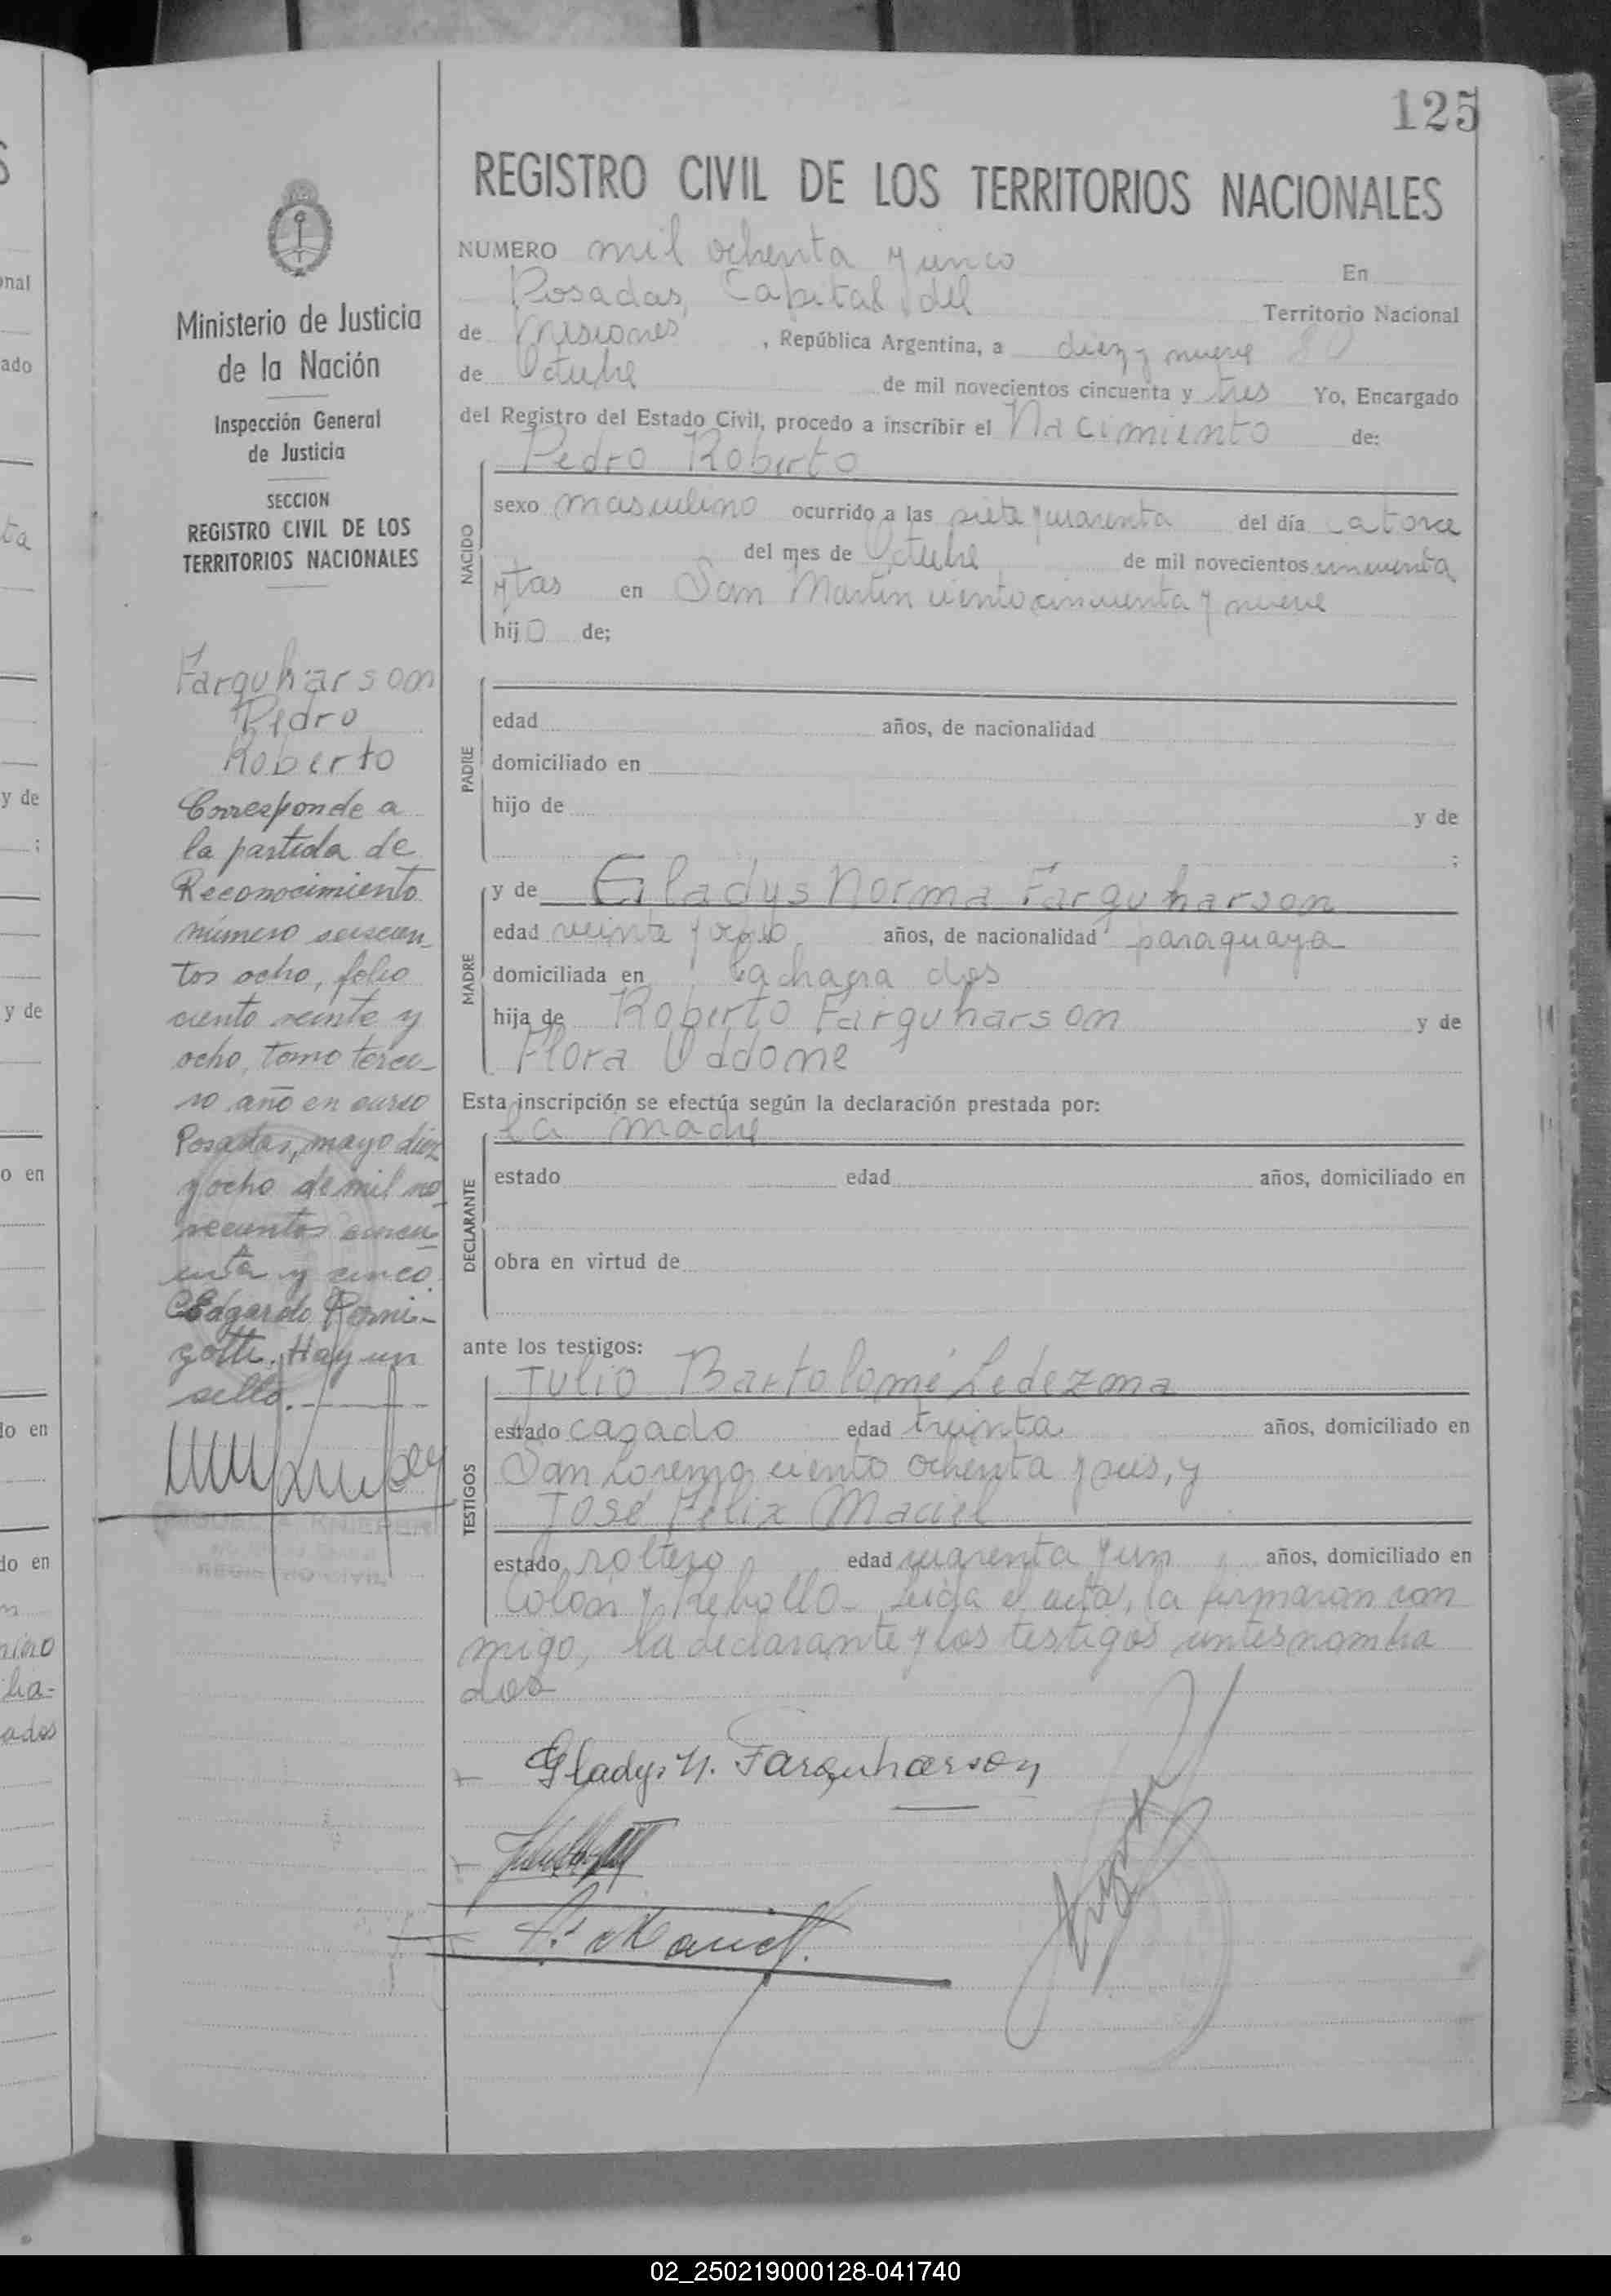 125
REGISTRO CIVIL DE LOS TERRITORIOS NACIONALES
NUMERO mil ochenta y cinco En
Posadas, Capital del Territorio Nacional
de Misiones, República Argentina, a diez y nueve
de Octubre de mil novecientos cincuenta y tres Yo, Encargado
del Registro del Estado Civil, procedo a inscribir el Nacimiento de:
Pedro Roberto
NACIDO
sexo masculino ocurrido a las siete y cuarenta del día catorce
del mes de Octubre de mil novecientos cincuenta
y tres en San Martin ciento cincuenta y nueve
hijo de;
PADRE
edad años, de nacionalidad
domiciliado en
hijo de y de
;
MADRE
y de Gladys Norma Farquharson
edad veinte y ocho años, de nacionalidad paraguaya
domiciliada en la chacra dos
hija de Roberto Farquharson y de
Flora
Esta inscripción se efectúa según la declaración prestada por:
la madre
DECLARANTE
estado edad años, domiciliado en
obra en virtud de
ante los testigos:
TESTIGOS
Julio Bartolomé Ledezma
estado casado edad treinta años, domiciliado en
San Lorenzo ciento ochenta y seis, y
José Felix Maciel
estado soltero edad cuarenta y un años, domiciliado en
Colón y Rebollo - Leida el acta, la firmaron con
migo, la declarante y los testigos antes nombra
dos
Gladys N. Farquharson
Ministerio de Justicia
de la Nación
Inspección General
de Justicia
SECCION
REGISTRO CIVIL DE LOS
TERRITORIOS NACIONALES
Farquharson
Pedro
Roberto
Corresponde a
la partida de
Reconocimiento
número seiscien-
tos ocho, folio
ciento veinte y
ocho, tomo terce-
ro año en curso
Posadas, mayo diez
y ocho de mil no
vecientos cincu
enta y cinco
Edgardo
Hay un
sello.
REGISTRO CIVIL
nal
ado
ta
y de
;
y de
o en
do en
do en
02_250219000128-041740